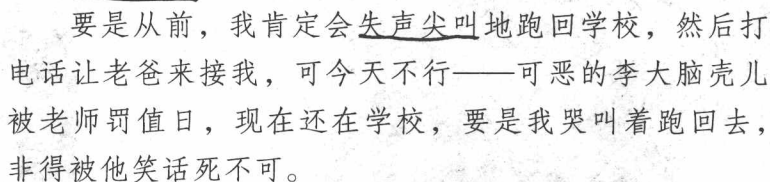 要是从前，我肯定会失声尖叫地跑回学校，然后打
电话让老爸来接我，可今天不行——可恶的李大脑壳儿
被老师罚值日，现在还在学校，要是我哭叫着跑回去，
非得被他笑话死不可。